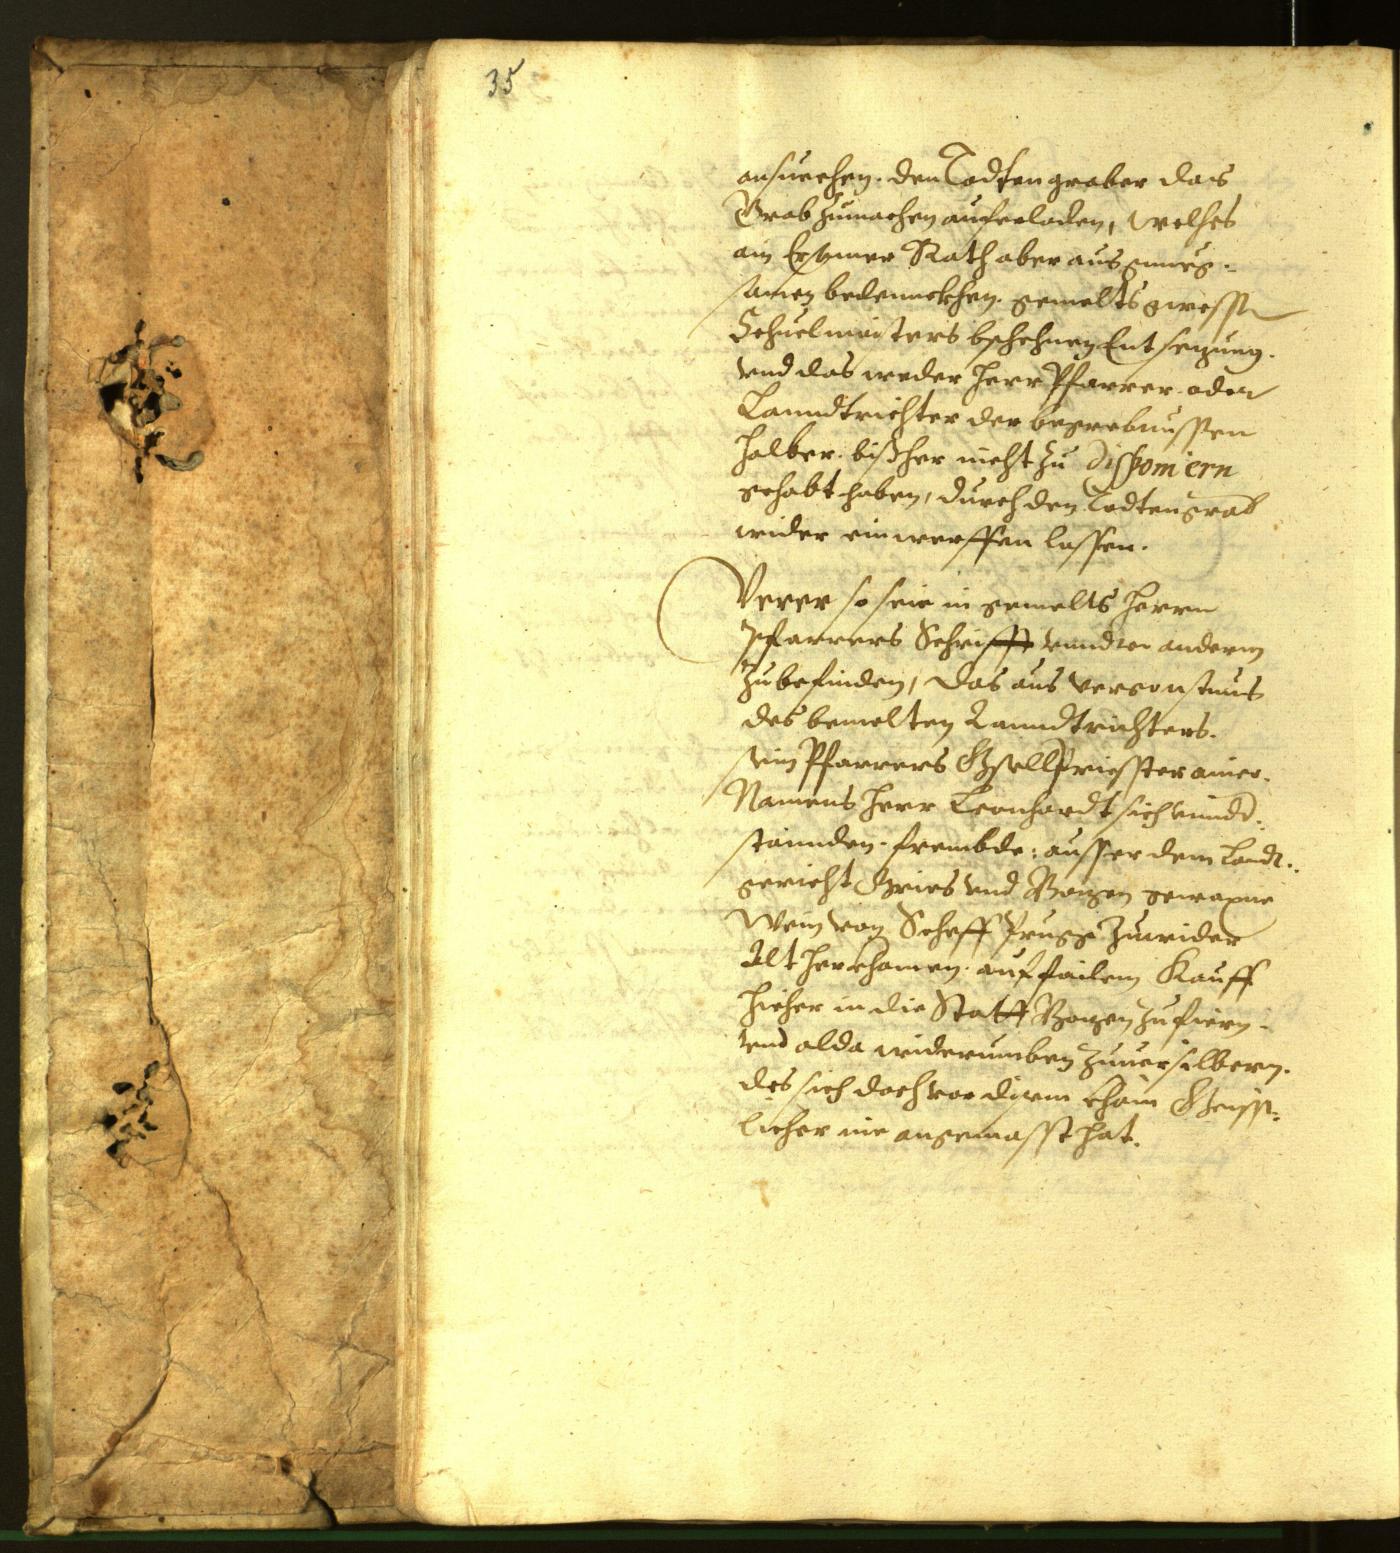 35
ansuechen. den Todtengraber das
Grab zumachen auferladen, welches
ain Ersamer Rath aber aus gnueg¬
samen bedennckhen. gemelts gwessten
Schuelmaisters bschehnen Entsezung.
vnd das weder Herr Pfarrer oder
Lanndtrichter der begrebnussen
halber. bißher nicht zu disponiern
gehabt haben, durch den Todtengrab
wider einwerffen lassen.
Verer so seie in gemelts Herrn
Pfarrers Schrifft vnnder anderm
zubefinden, das aus
des bemelten Lanndtrichters.
sein Pfarrers Gsellpriesster ainer.
Namens Herr Leonhardt sich vnnd¬
stannden. frembde: ausser dem Landt¬
gericht Gries vnd Bozen gewaxne
Wein von Schaff Prugg zuwider
Alt herkhamen. auf failem Kauff
hieher in die Statt Bozen zufiern.
vnd alda widerumben zuuersilbern.
des sich doch vor disem khain Geist¬
licher nie angemasst hat.